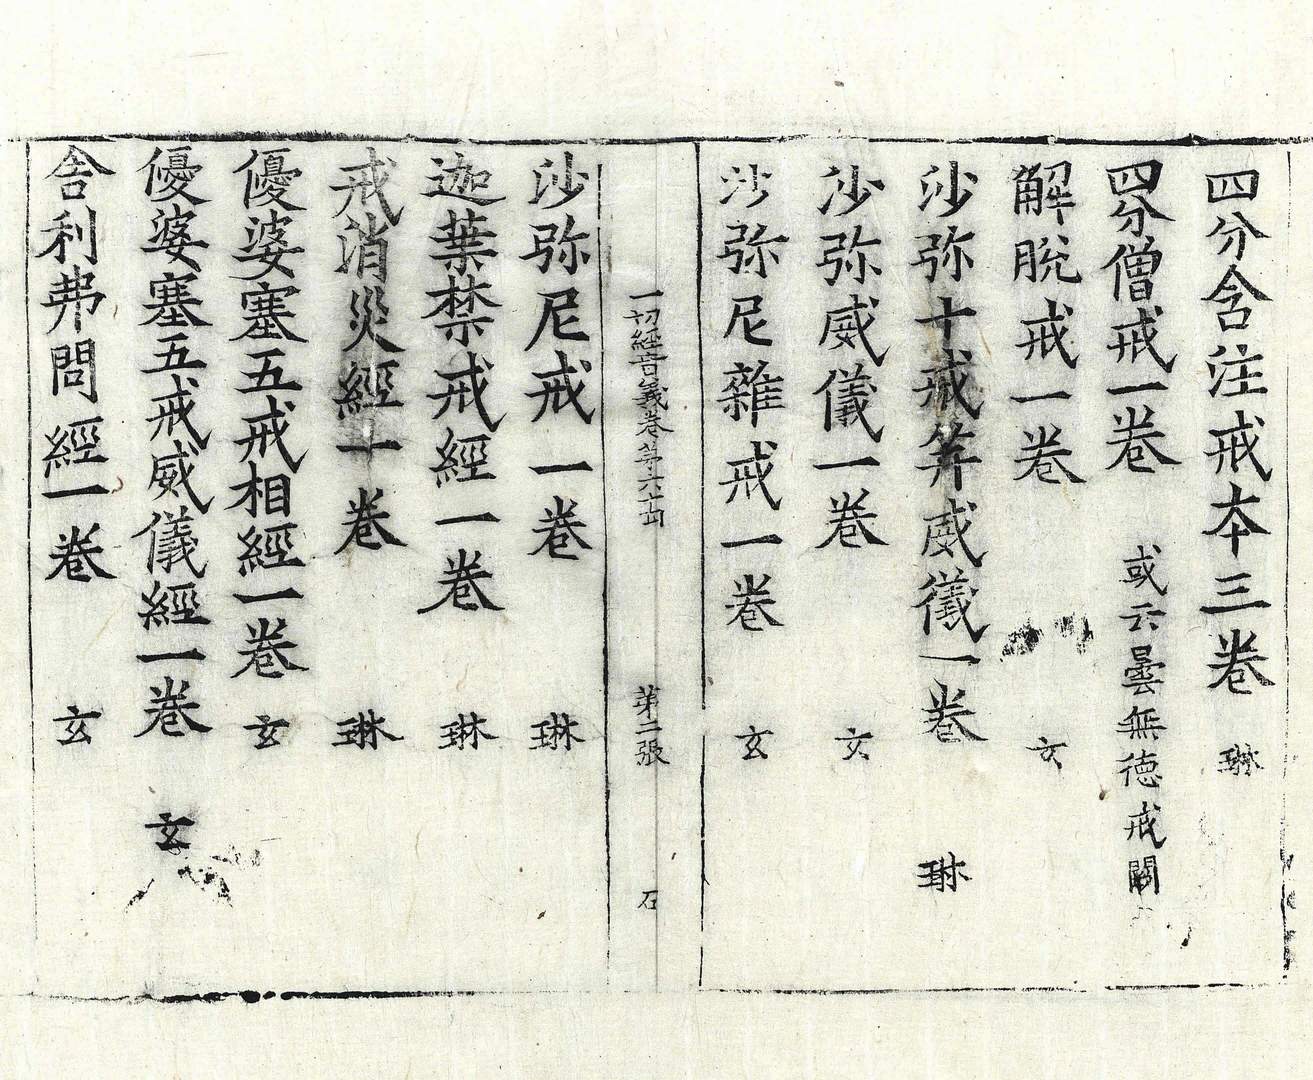 四分含注戒本三卷 琳
四分僧戒一卷 或云曇無德戒闕
解脫戒一卷 玄
沙弥十戒并威儀一卷 琳
沙弥威儀一卷 玄
沙弥尼雜戒一卷 玄
一切經音義卷第六十四 第二張 石
沙弥尼戒一卷 琳
迦葉禁戒經一卷 琳
戒消災經一卷 琳
優婆塞五戒相經一卷 玄
優婆塞五戒威儀經一卷 玄
舍利弗問經一卷 玄